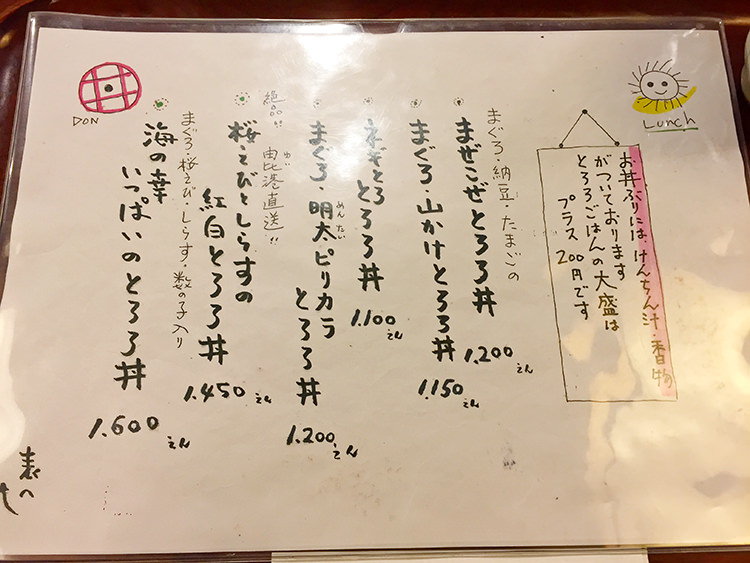 Lunch
お丼ぶりには、けんちん汁・香物
がついております
とろろごはんの大盛は
プラス200円です
まぐろ・納豆・たまごの
まぜこぜとろろ丼
1.200えん
まぐろ・山かけとろろ丼
1.150えん
ネギとろ
とろろ丼
1.100えん
まぐろ・明太ピリカラ
めんたい
とろろ丼
1.200えん
絶品!! 由比港直送!!
ゆい
桜えびとしらすの
紅白とろろ丼
1.450えん
まぐろ・桜えび・しらす・数の子入り
海の幸
いっぱいのとろろ丼
1.600えん
DON
表へ